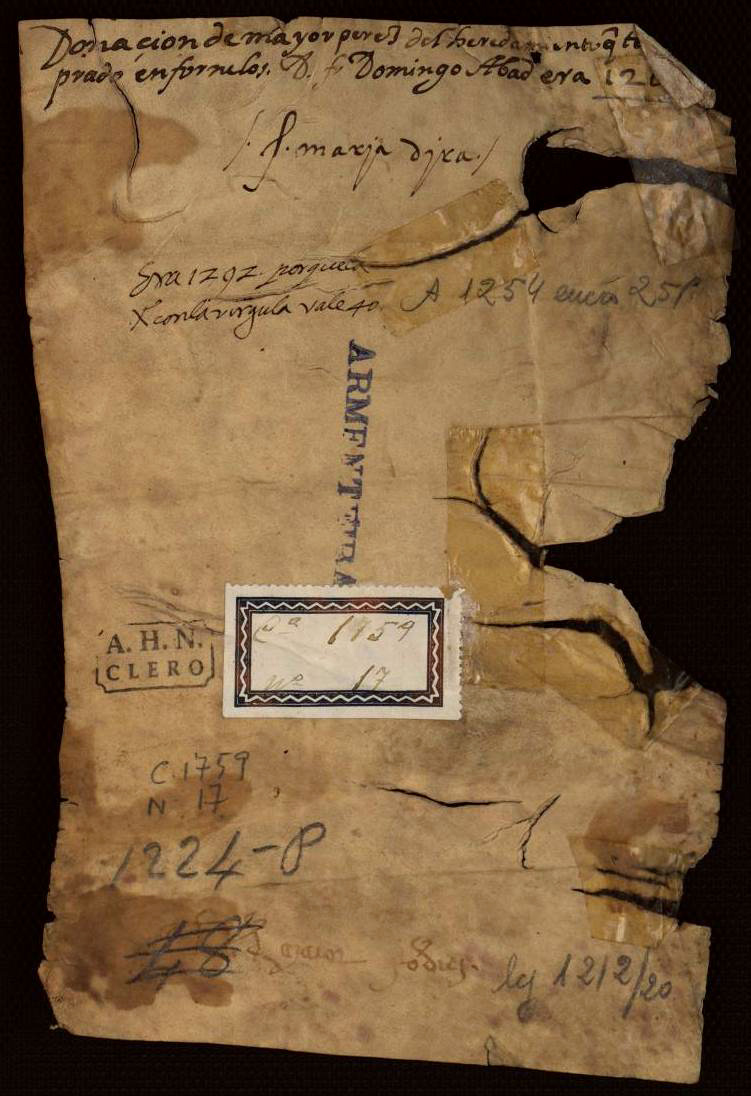 Donacion de mayor perez del heredamiento q̃
prado en fornelos. D. fr Domingo Abad era 12
/. f. maria djxa./
Era 1292. porque la
X con la virgula vale 40.
A 1254 enero 25 P.
ARMENTEIRA
Cª 1759
Nº 17
A. H. N.
CLERO
C. 1759
N. 17
1224-P
48
leg 1212/20